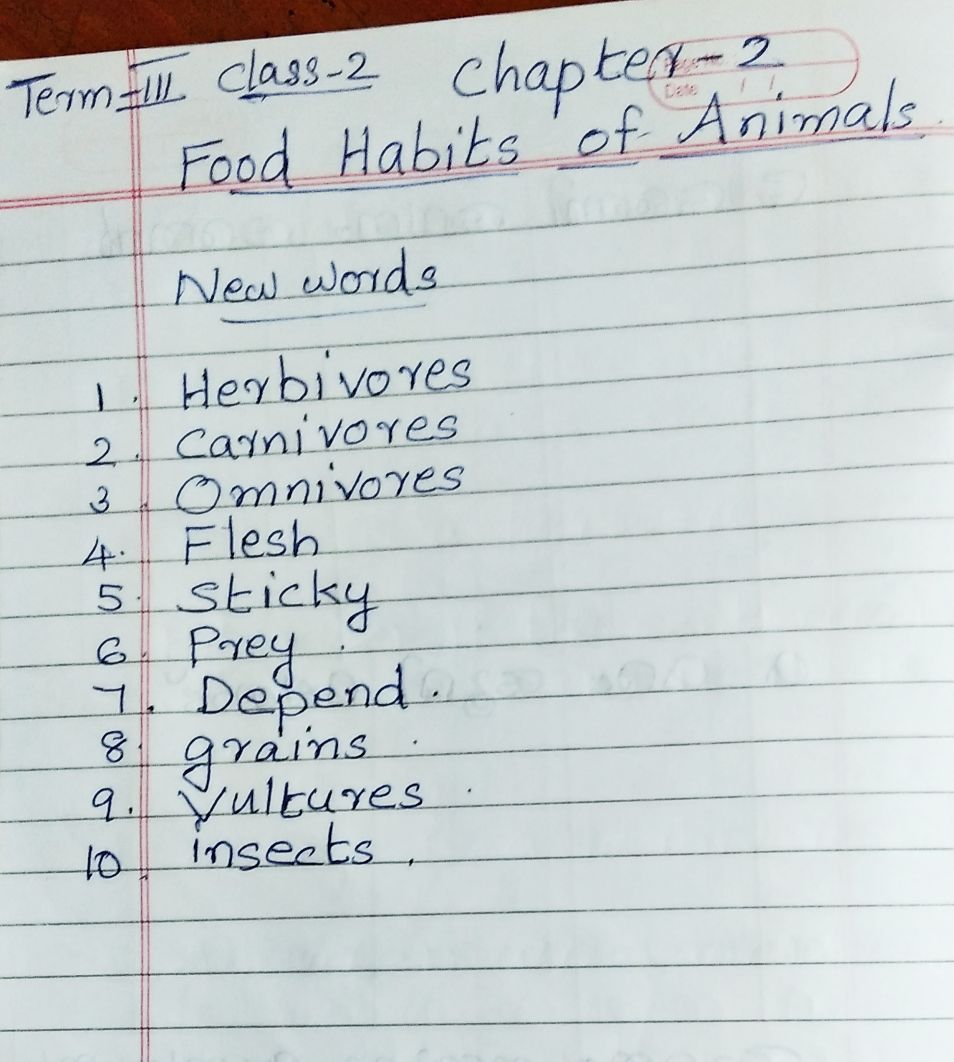 Term-III Class-2 Chapter-2
Date
Food Habits of Animals.
New words
1. Herbivores
2. Carnivores
3. Omnivores
4. Flesh
5. Sticky
6. Prey.
7. Depend.
8. grains.
9. Vultures.
10. insects.